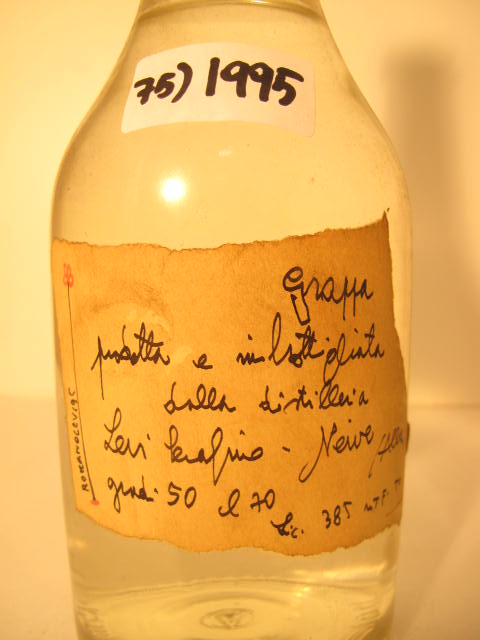 75) 1995
Grappa
prodotta e imbottigliata
dalla distilleria
Levi Serafino - Neive
gradi 50 cl 70
Lic. 385
ROMANOLEVI95